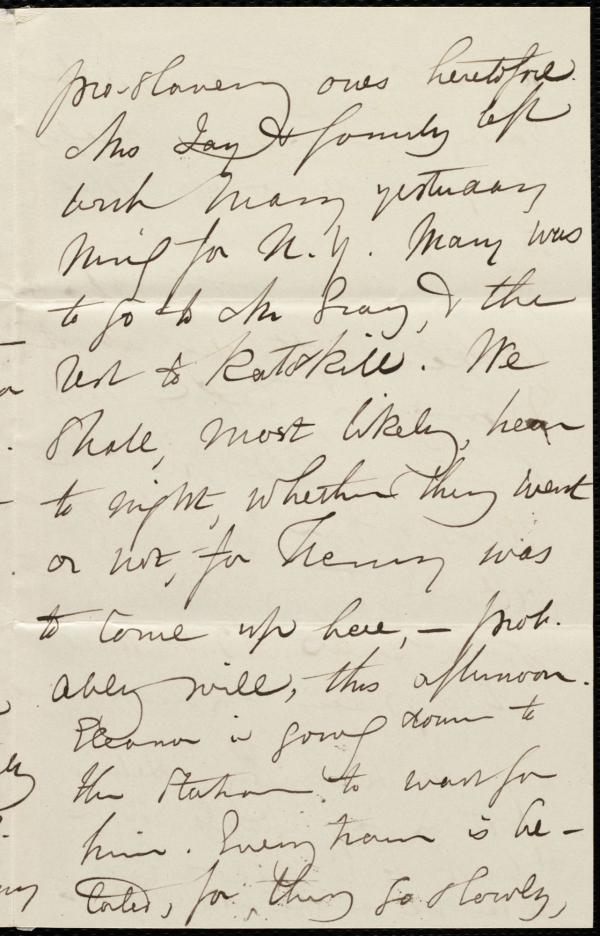 pro-slavery ones heretofore.
Mrs Jay & family left
with Mary yesterday
m'ng for N.Y. Mary was
to go to Mr Gray, & the
rest to Katskill. We
shall, most likely, hear
to night, whether they went
or not, for Henry was
to come up here, – prob-
ably will, this afternoon.
Eleanor is going down to
the Station to wait for
him. Every train is be-
lated, for they go slowly,